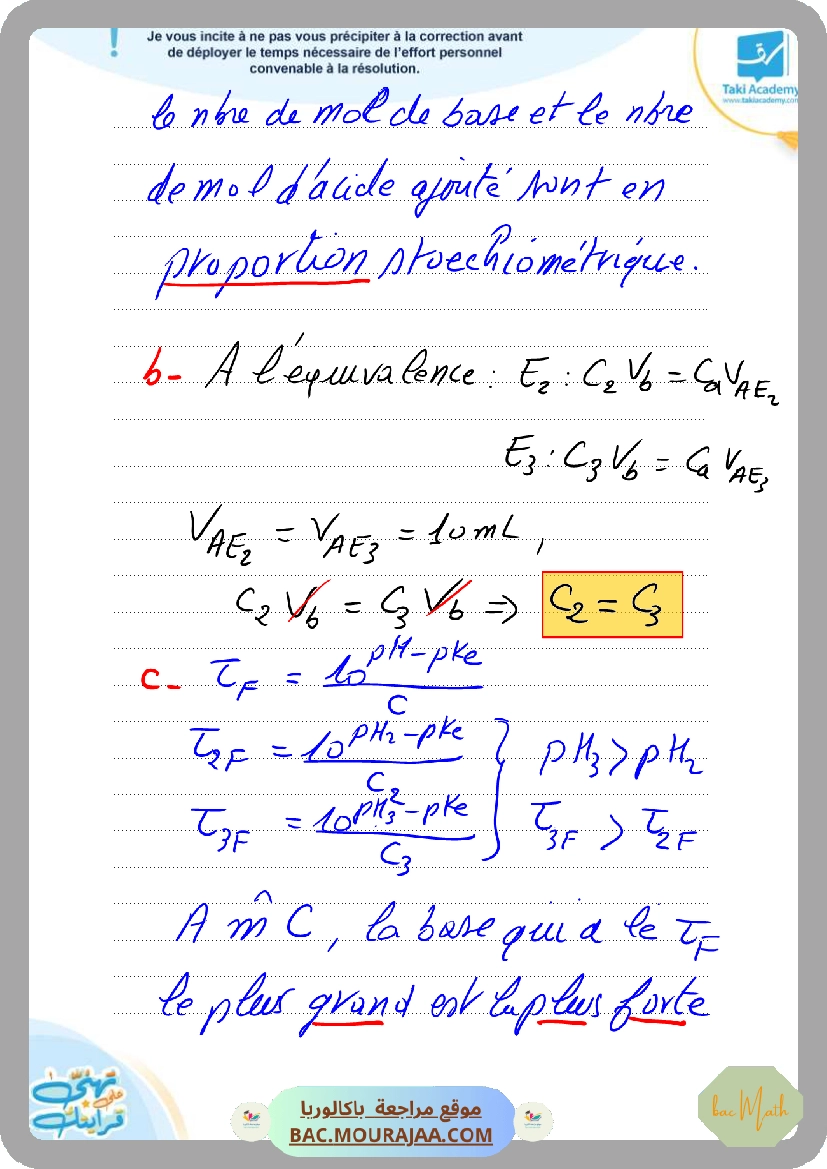 Je vous incite à ne pas vous précipiter à la correction avant
de déployer le temps nécessaire de l'effort personnel
convenable à la résolution.
Taki Academy
www.takiacademy.com
le nbre de mol de base et le nbre
de mol d'acide ajouté sont en
proportion stoechiométrique.
b- A l'équivalence : E₂ : C₂ V_b = C_a V_AE₂
E₃ : C₃ V_b = C_a V_AE₃
V_AE₂ = V_AE₃ = 10 mL,
C₂ V_b = C₃ V_b ⇒ C₂ = C₃
c- τ_F = 10^(pH-pKe) / C
τ_2F = 10^(pH₂-pKe) / C₂ } pH₃ > pH₂
τ_3F = 10^(pH₃-pKe) / C₃ } τ_3F > τ_2F
A m̂ C, la base qui a le τ_F
le plus grand est la plus forte
تهنّى
على
قرايتك
موقع مراجعة باكالوريا
BAC.MOURAJAA.COM
bac Math